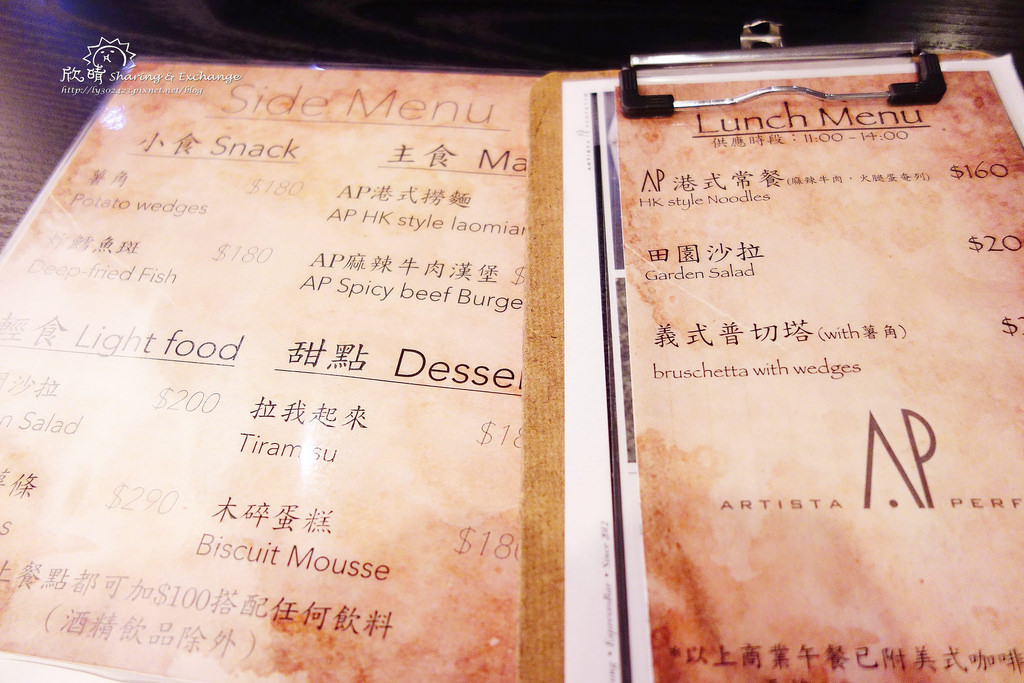 欣晴 Sharing & Exchange
http://ly302425.pixnet.net/blog
Side Menu
小食 Snack
薯角 $180
Potato wedges
炸鱈魚斑 $180
Deep-fried Fish
輕食 Light food
沙拉 $200
Salad
條 $290
主食
AP港式撈麵
AP HK style laomian
AP麻辣牛肉漢堡 $
AP Spicy beef Burge
甜點
拉我起來
Tiramisu
木碎蛋糕 $180
Biscuit Mousse
上餐點都可加$100搭配任何飲料
(酒精飲品除外)
Lunch Menu
供應時段:11:00-14:00
AP港式常餐(麻辣牛肉,火腿蛋奄列) $160
HK style Noodles
田園沙拉 $20
Garden Salad
義式普切塔(with薯角)
bruschetta with wedges
AP
ARTISTA PERF
*以上商業午餐已附美式咖啡